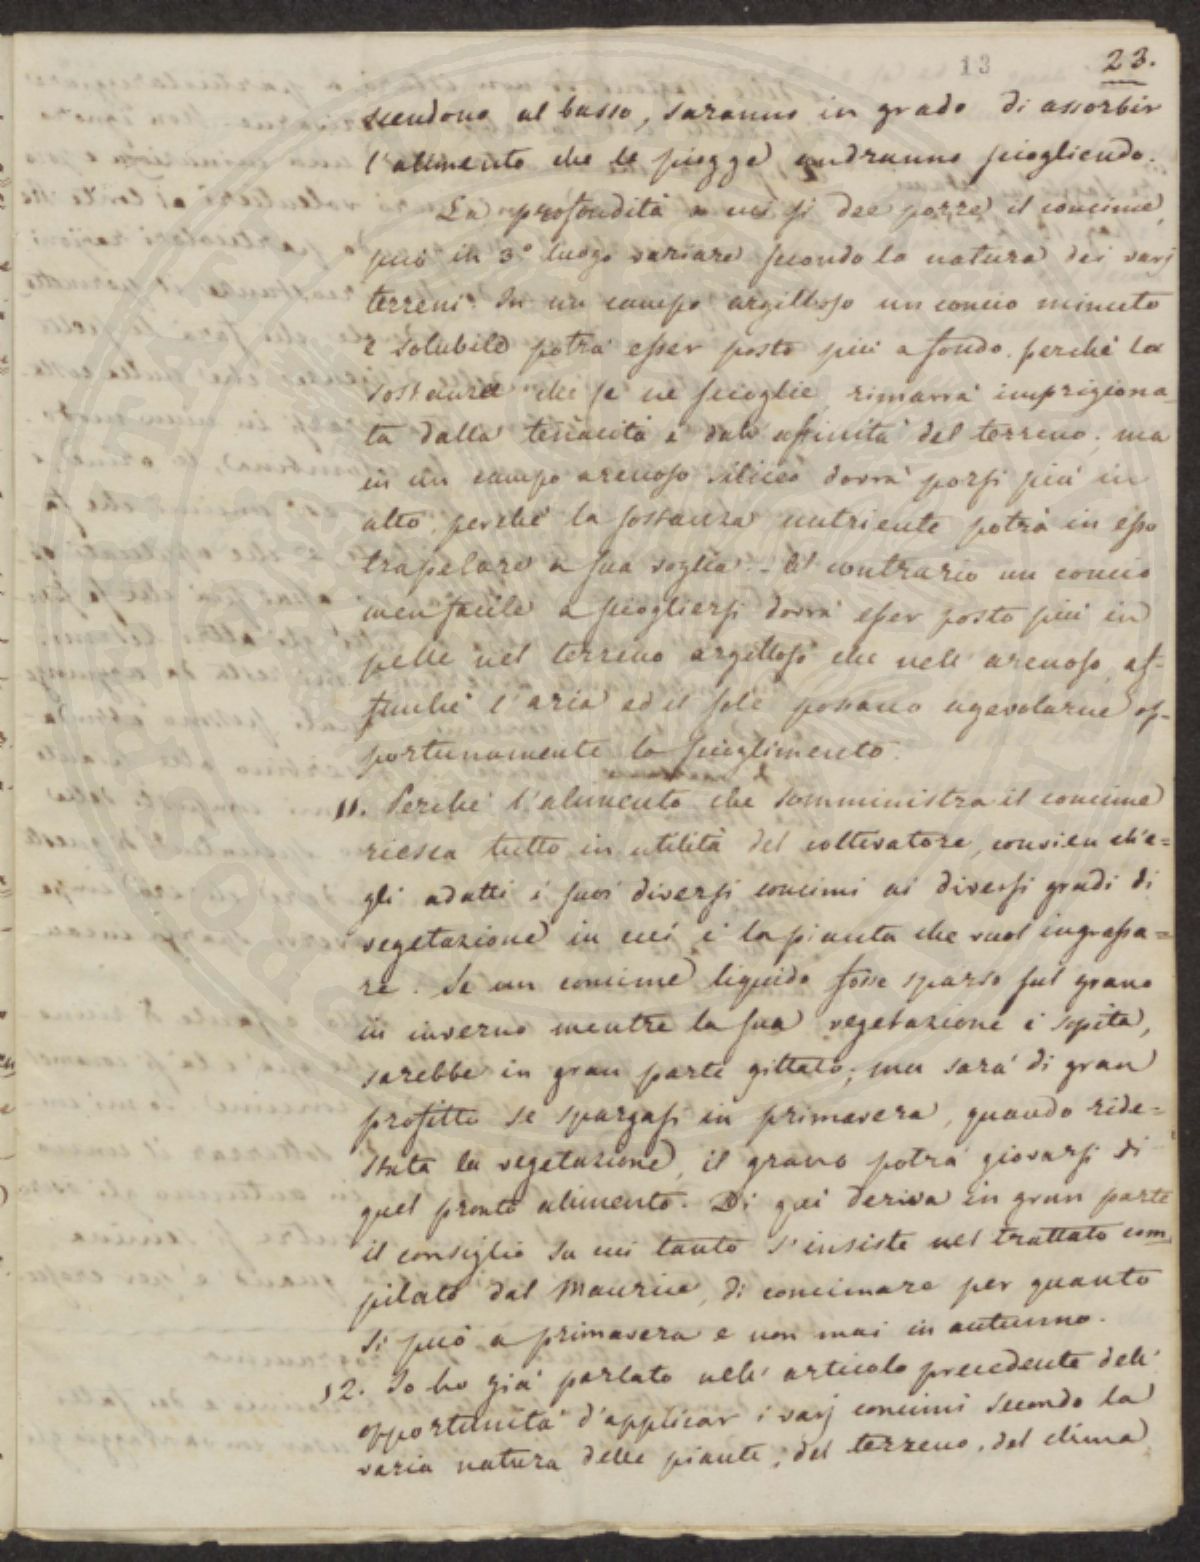 13 23.
scendono al basso, saranno in grado di assorbir
l'alimento che le piogge andranno sciogliendo.
La profondità a cui si dee porre il concime,
può in 3° luogo variare secondo la natura dei varj
terreni. In un campo argilloso un concio minuto
e solubile potrà esser posto più a fondo, perchè la
sostanza che se ne scioglie, rimarrà imprigiona-
ta dalla tenacità e dall'affinità del terreno; ma
in un campo arenoso siliceo dovrà porsi più in
alto, perchè la sostanza nutriente potrà in esso
trapelare a sua voglia. - Al contrario un concio
men facile a sciogliersi dovrà esser posto più in
pelle nel terreno argilloso che nell'arenoso, af-
finchè l'aria ed il sole possano agevolarne op-
portunamente lo scioglimento.
11. Perchè l'alimento che somministra il concime
riesca tutto in utilità del coltivatore, convien ch'e=
gli adatti i suoi diversi concimi ai diversi gradi di
vegetazione in cui è la pianta che vuol ingrassa=
re. Se un concime liquido fosse sparso sul grano
in inverno mentre la sua vegetazione è sopita,
sarebbe in gran parte gittato; ma sarà di gran
profitto se spargasi in primavera, quando ride=
stata la vegetazione, il grano potrà giovarsi di
quel pronto alimento. Di qui deriva in gran parte
il consiglio su cui tanto s'insiste nel trattato com
pilato dal Maurice, di concimare per quanto
si può a primavera e non mai in autunno.
12. Io ho già parlato nell'articolo precedente dell'
opportunità d'applicar i varj concimi secondo la
varia natura delle piante, del terreno, del clima